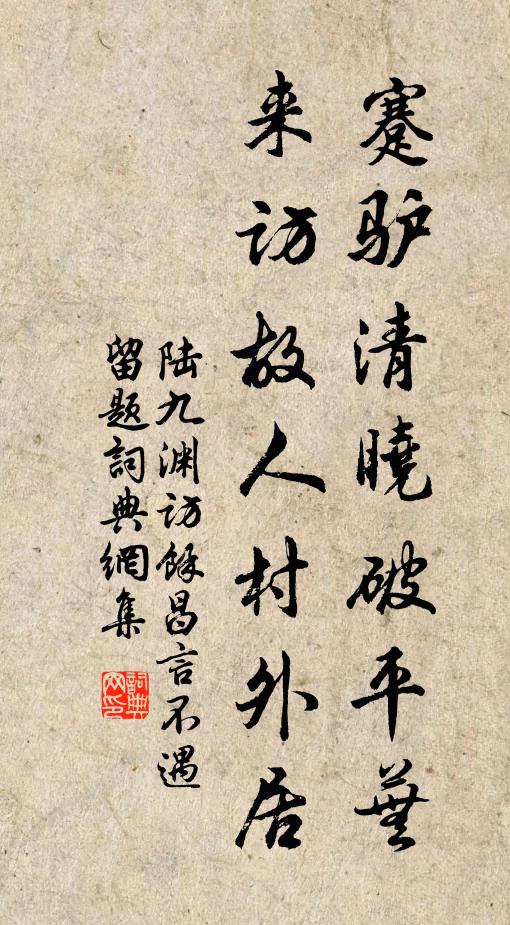 蹇驴清曉破平蕪
来访故人村外居
陆九渊访餘昌言不遇
留题詞典網集
詞典
网印